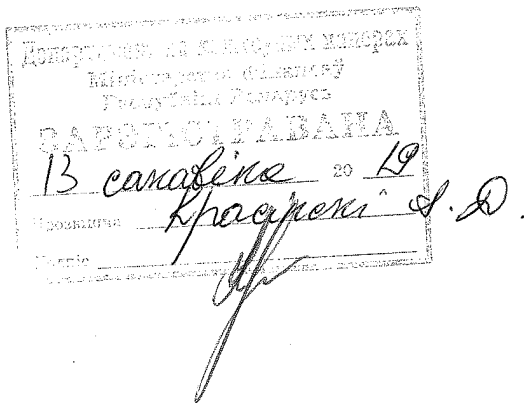 Дэпартамент па каштоўных паперах
Міністэрства фінансаў
Рэспублікі Беларусь
ЗАРЭГІСТРАВАНА
13 сакавіка 20 19
Прозвішча Красінскі
Подпіс